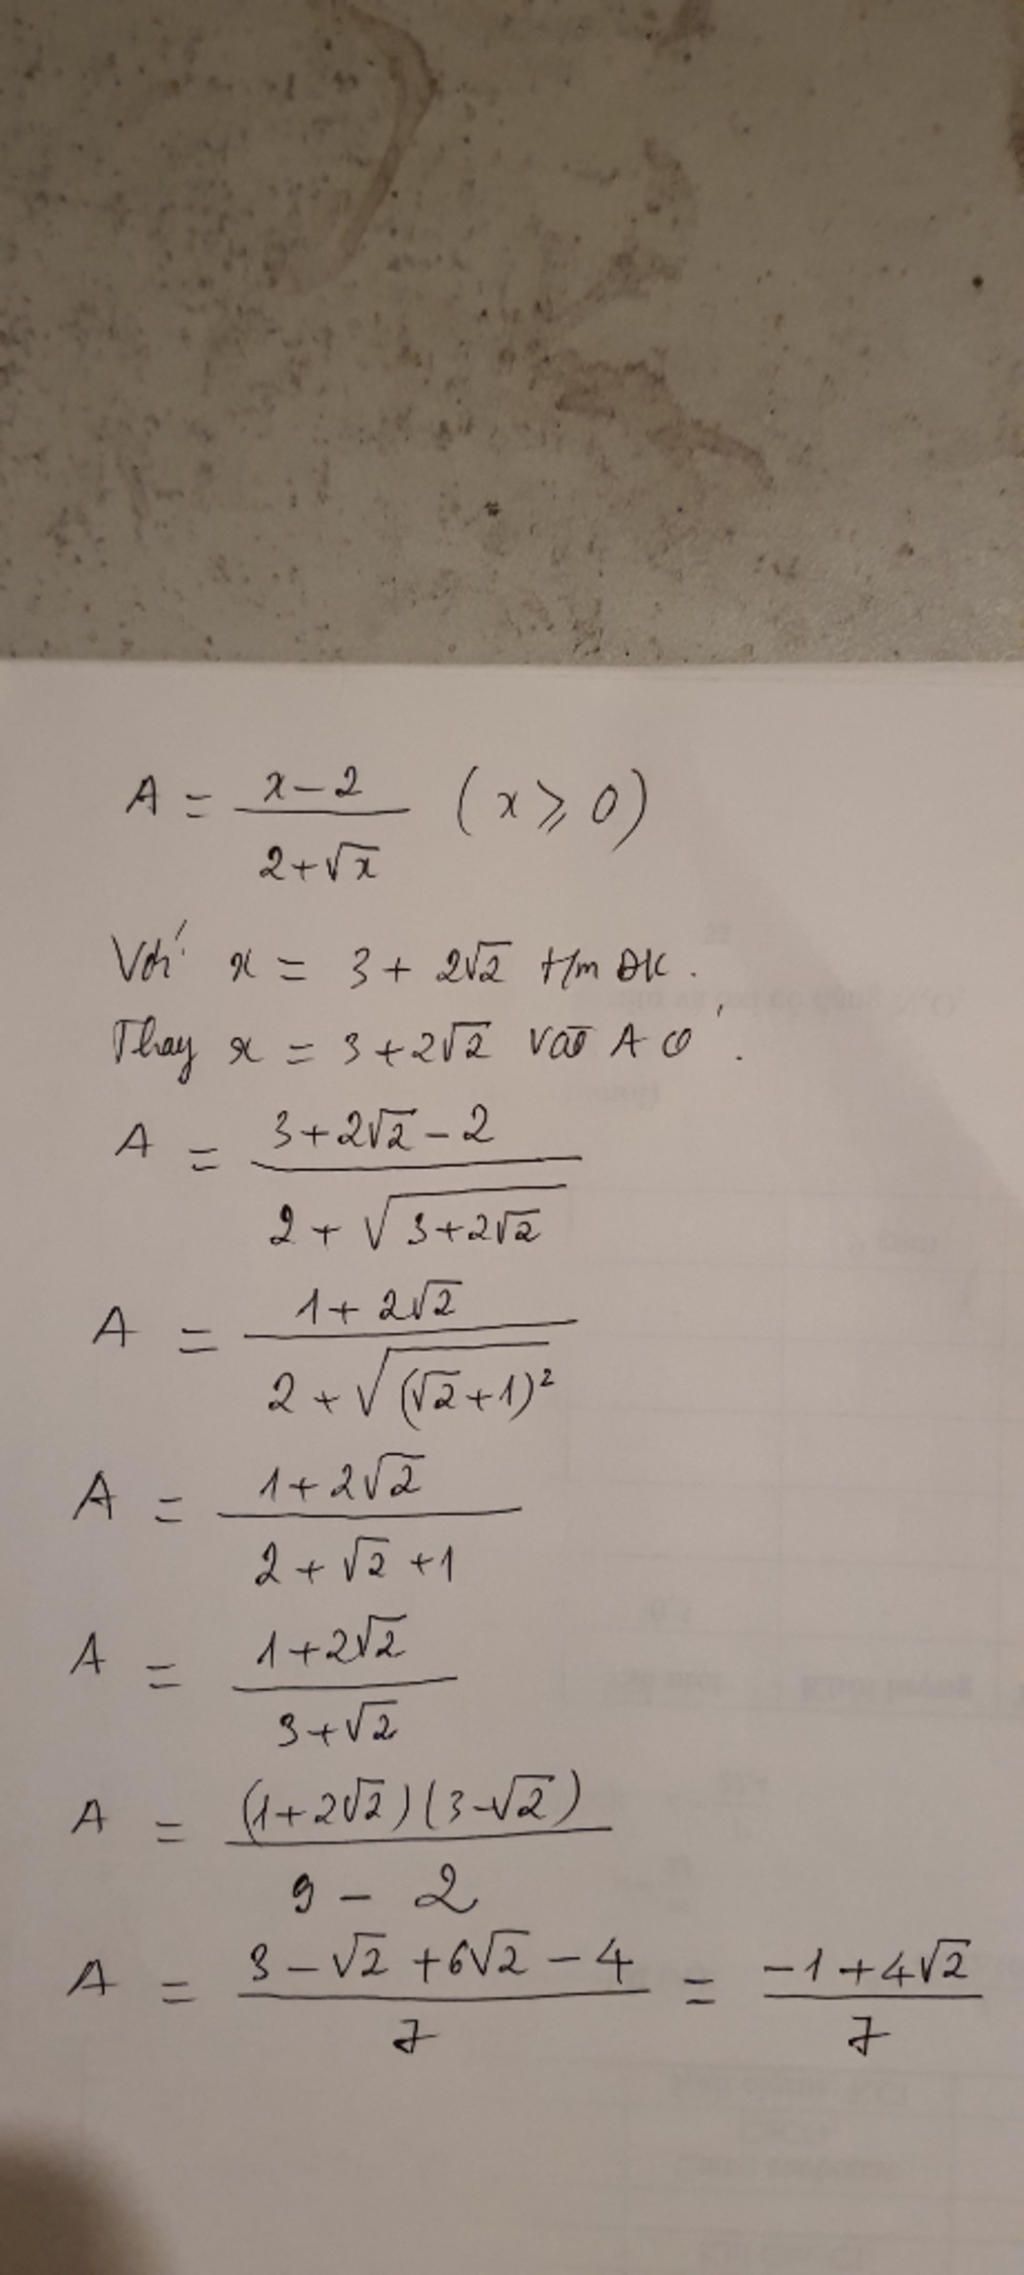 A = \frac{x-2}{2+\sqrt{x}} (x ⩾ 0)
Với x = 3 + 2√2 t/m ĐK.
Thay x = 3 + 2√2 vào A có :
A = \frac{3+2\sqrt{2}-2}{2+\sqrt{3+2\sqrt{2}}}
A = \frac{1+2\sqrt{2}}{2+\sqrt{(\sqrt{2}+1)^2}}
A = \frac{1+2\sqrt{2}}{2+\sqrt{2}+1}
A = \frac{1+2\sqrt{2}}{3+\sqrt{2}}
A = \frac{(1+2\sqrt{2})(3-\sqrt{2})}{9-2}
A = \frac{3-\sqrt{2}+6\sqrt{2}-4}{7} = \frac{-1+4\sqrt{2}}{7}